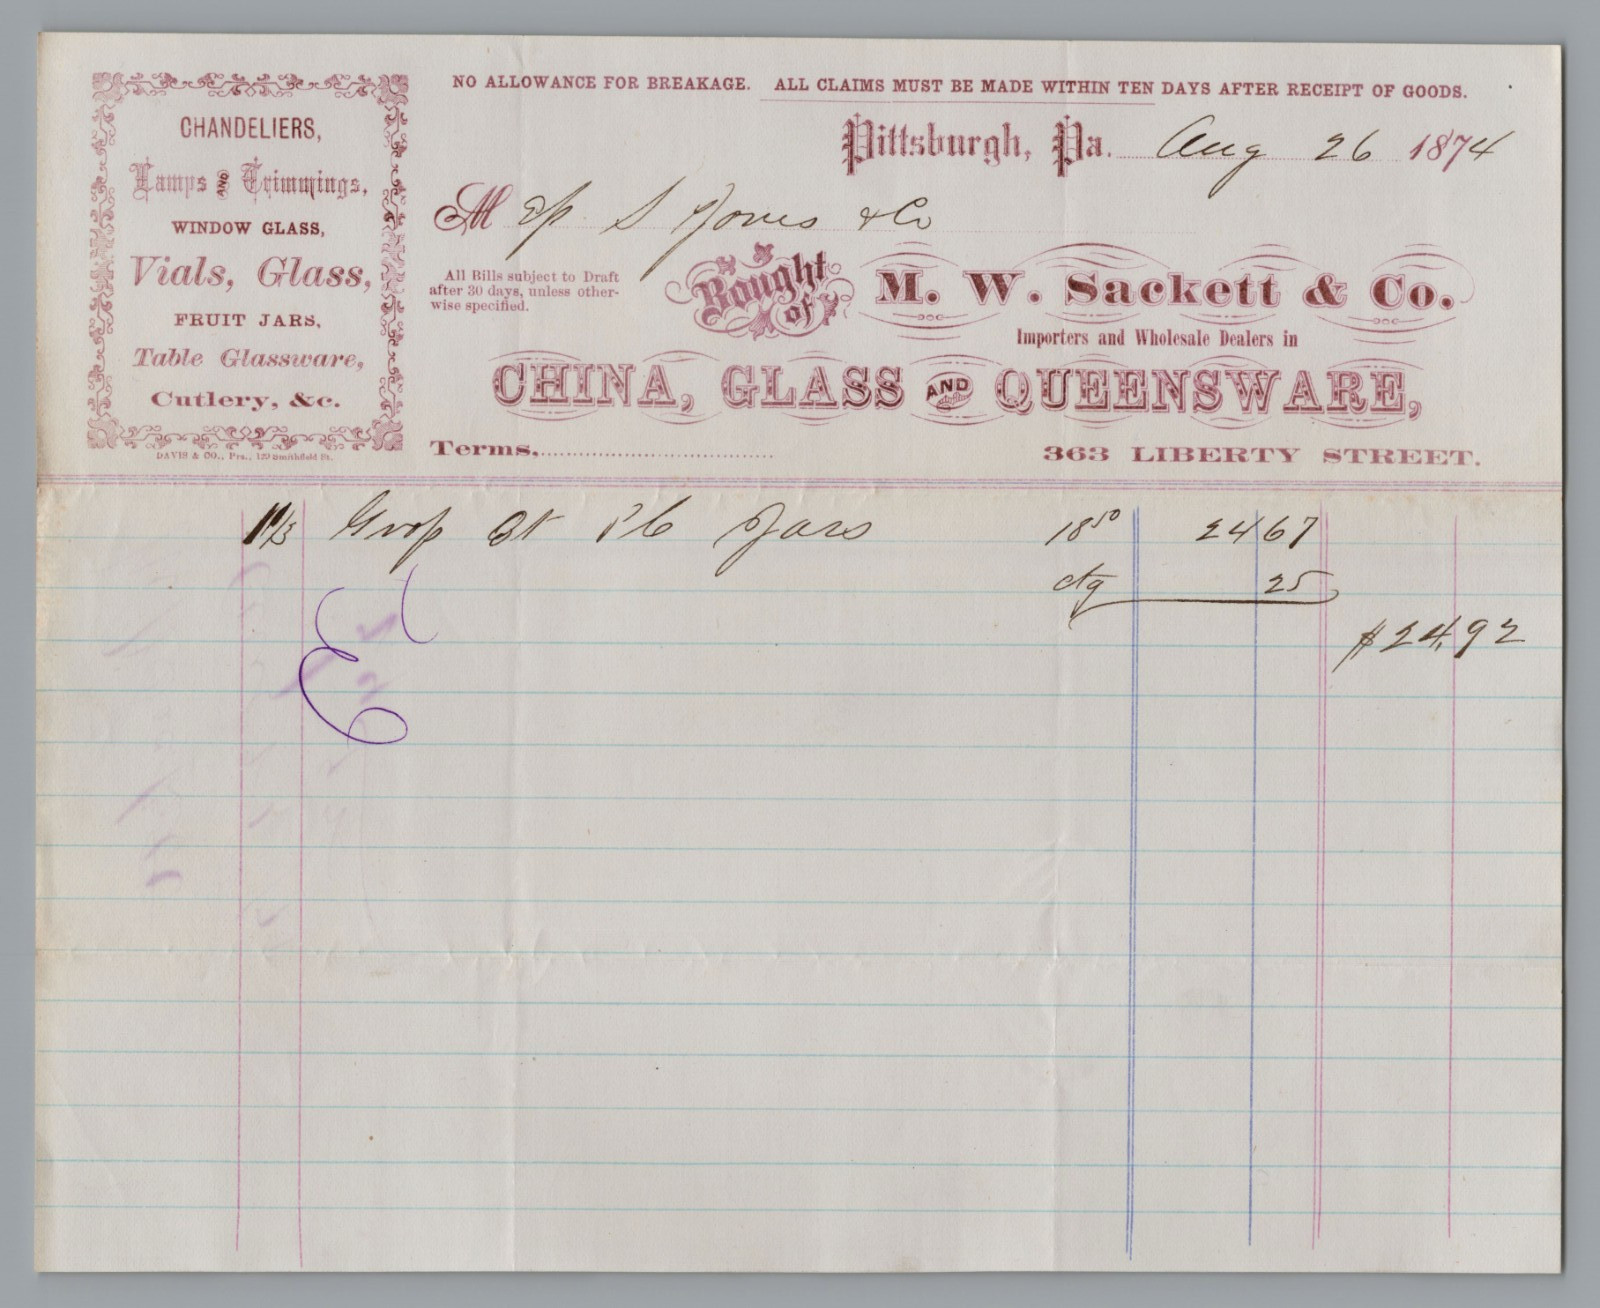 NO ALLOWANCE FOR BREAKAGE. ALL CLAIMS MUST BE MADE WITHIN TEN DAYS AFTER RECEIPT OF GOODS.
Pittsburgh, Pa. Aug 26 1874
M S Jones & Co
All Bills subject to Draft
after 30 days, unless other-
wise specified.
Bought of M. W. Sackett & Co.
Importers and Wholesale Dealers in
CHINA, GLASS AND QUEENSWARE,
Terms, 363 LIBERTY STREET.
CHANDELIERS,
Lamps AND Trimmings,
WINDOW GLASS,
Vials, Glass,
FRUIT JARS,
Table Glassware,
Cutlery, &c.
DAVIS & CO., Prs., 129 Smithfield St.
1 1/3 Jars 18 50 24 67
ctg 25
$24.92